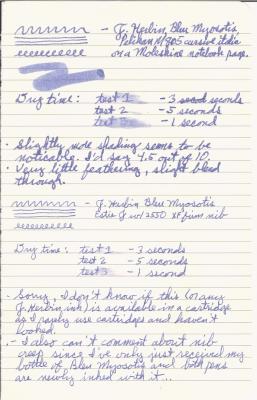 - J. Herbin, Bleu Myosotis,
Pelikan M805 cursive italic
on a Moleskine notebook page.
Dry time: test 1 - 3 seconds
test 2 - 5 seconds
test 3 - 1 second
. Slightly more shading seems to be
noticable. I'd say 4.5 out of 10.
. Very little feathering, slight bleed
through.
- J. Herbin Bleu Myosotis
Estie J w/ 2550 XF firm nib
Dry time: test 1 - 3 seconds
test 2 - 5 seconds
test 3 - 1 second
- Sorry, I don't know if this (or any
J. Herbin ink) is available in a cartridge
as I rarely use cartridges and haven't
looked.
- I also can't comment about nib
creep since I've only just received my
bottle of Bleu Myosotis and both pens
are newly inked with it...